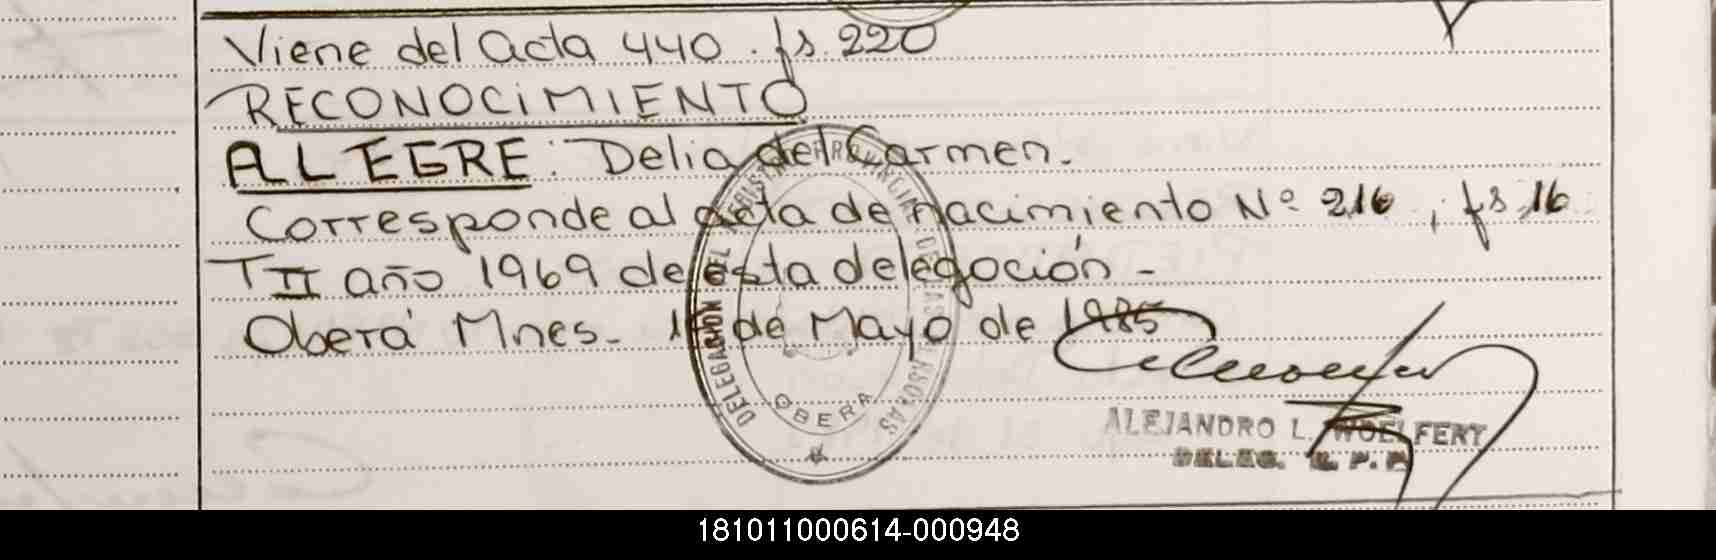 Viene del acta 440. fs. 220
RECONOCIMIENTO
ALEGRE: Delia del Carmen.
Corresponde al acta de nacimiento Nº 216, fs 16
T II año 1969 de esta delegación -
Oberá Mnes. de Mayo de 1985
DELEGACION DEL REGISTRO PROVINCIAL DE LAS PERSONAS
OBERA
ALEJANDRO L. WOELFERT
DELEG. R. P. P.
181011000614-000948